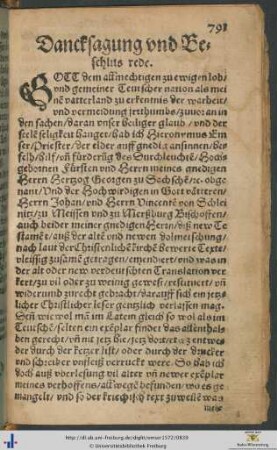 791
Dancksagung vnd Be-
schluß rede.
GOTT dem allmechtigen zu ewigen lob/
vnd gemeiner Teutscher nation als mei
nem vatterland zu erkentnis der warheit/
vnd vermeidung jrrthumbs/zuuoran in
den sachen/daran vnser heiliger glaub/vnd der
seelē seligkeit hanget/hab ich Hieronymus Em
ser/Priester/der beider auff gnedig ansinnen/be-
felh/hilf/vñ fürderūg des Durchleuchtē/Hoch
gebornen Fürsten vnd Herrn meines gnedigen
Herrn Herzog Georgen zu Sachsē/ec. obge
nant/Vnd der Hochwirdigen in Gott vätteren/
Herrn Johan/vnd Herrn Vincentē von Schle
nitz/zu Meissen vnd zu Merßburg Bischoffen/
auch beider meiner gnedigen Herrn/diß new Te
stamēt/auß der alte vnd newen dolmetschung/
nach laut der Christenlichē kirchē bewerte Text/
vleissig zusamē getragen/emendiert/vnd was in
der alt oder new verdeutschten Translation ver
kert/zu vil oder zu weinig gewest/restituiert/vñ
widerumb zurecht gebracht/darauff sich ein jetz-
licher Christlicher leser gentzlich verlassen mag.
Deñ wie wol mā im Latem gleich so wol als im
Teutschē/selten ein exēplar findet das allenthal
ben gerecht/vñ nit jetz hie/jetz dort/
der durch der ketzer list/oder durch der drucker
vnd schreiber vnfleiß verruckt were. So hab ich
doch auß vberlesung vil alter vñ newer exēplar
meines verhoffens/allwege befunden/wo es ge
mangelt/vnd so der kriechisch text zuweilē was
http://dl.ub.uni-freiburg.de/diglit/emser1572/0839
© Universitätsbibliothek Freiburg